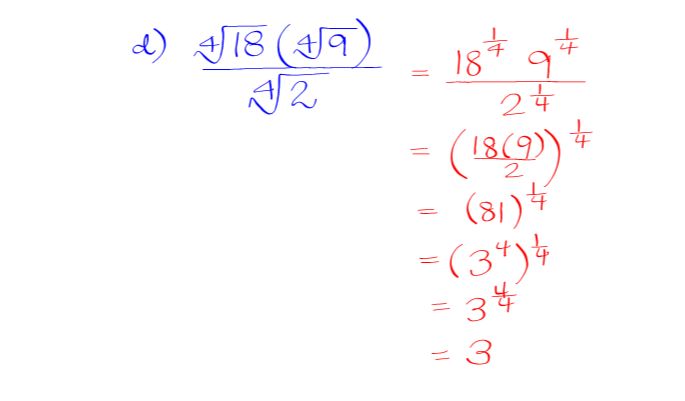 d) ∜18 (∜9) / ∜2 = 18^(1/4) 9^(1/4) / 2^(1/4)
= (18(9)/2)^(1/4)
= (81)^(1/4)
= (3^4)^(1/4)
= 3^(4/4)
= 3